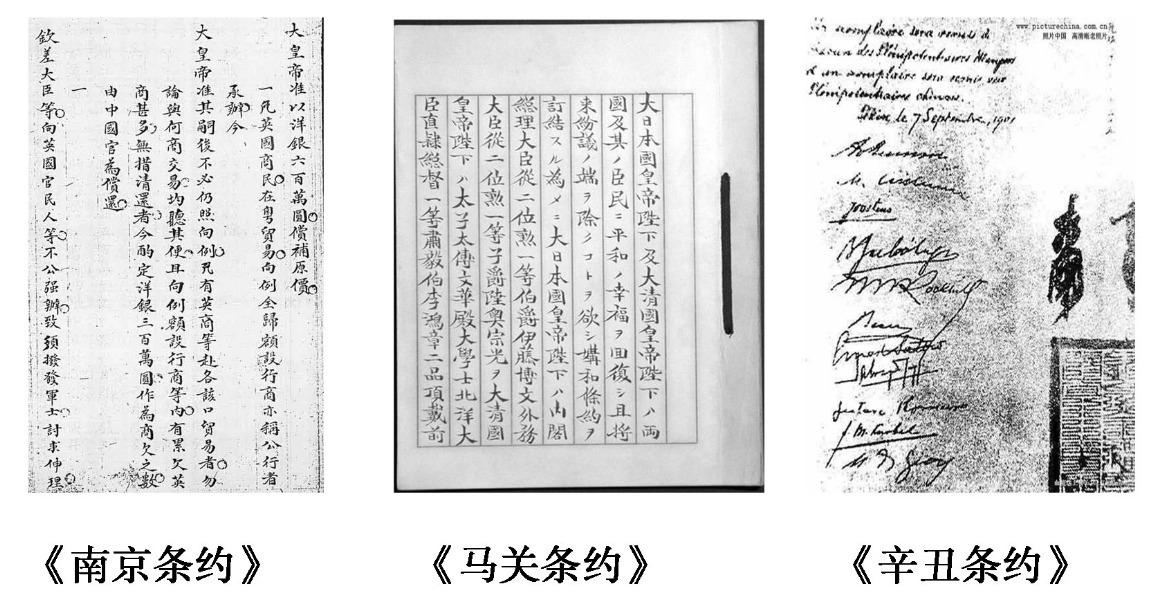 大皇帝准以洋銀六百萬圓償補原價
一凡英國商民在粵貿易向例全歸額設行商亦稱公行者
承辦今
大皇帝准其嗣後不必仍照向例凡有英商等赴各該口貿易者勿
論與何商交易均聽其便且向例額設行商等內有累欠英
商甚多無措清還者今酌定洋銀三百萬圓作為商欠之數
由中國官為償還
一
欽差大臣等向英國官民人等不公強辦致須撥發軍士討求伸理
大日本國皇帝陛下及大清國皇帝陛下ハ両
國及其ノ臣民ニ平和ノ幸福ヲ囘復シ且将
來紛議ノ端ヲ除クコトヲ欲シ媾和條約ヲ
訂結スル為メニ大日本國皇帝陛下ハ内閣
總理大臣從二位勲一等伯爵伊藤博文外務
大臣從二位勲一等子爵陸奥宗光ヲ大清國
皇帝陛下ハ太子太傅文華殿大學士北洋大
臣直隷總督一等肅毅伯李鴻章二品頂戴前
www.picturechina.com.cn
照片中国 高清晰老照片
un exemplaire sera remis à
chacun des Plénipotentiaires étrangers
et un exemplaire sera remis aux
Plénipotentiaires chinois.
Pékin, le 7 Septembre, 1901
Joostens
《南京条约》
《马关条约》
《辛丑条约》